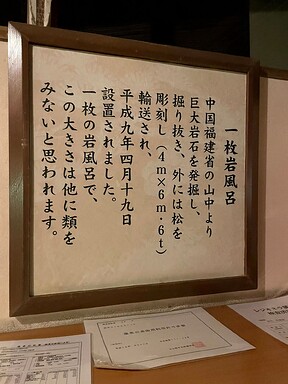 一枚岩風呂
中国福建省の山中より
巨大岩石を発掘し、
掘り抜き、外には松を
彫刻し（4m×6m・6t）
輸送され、
平成九年四月十九日
設置されました。
一枚の岩風呂で、
この大きさは他に類を
みないと思われます。